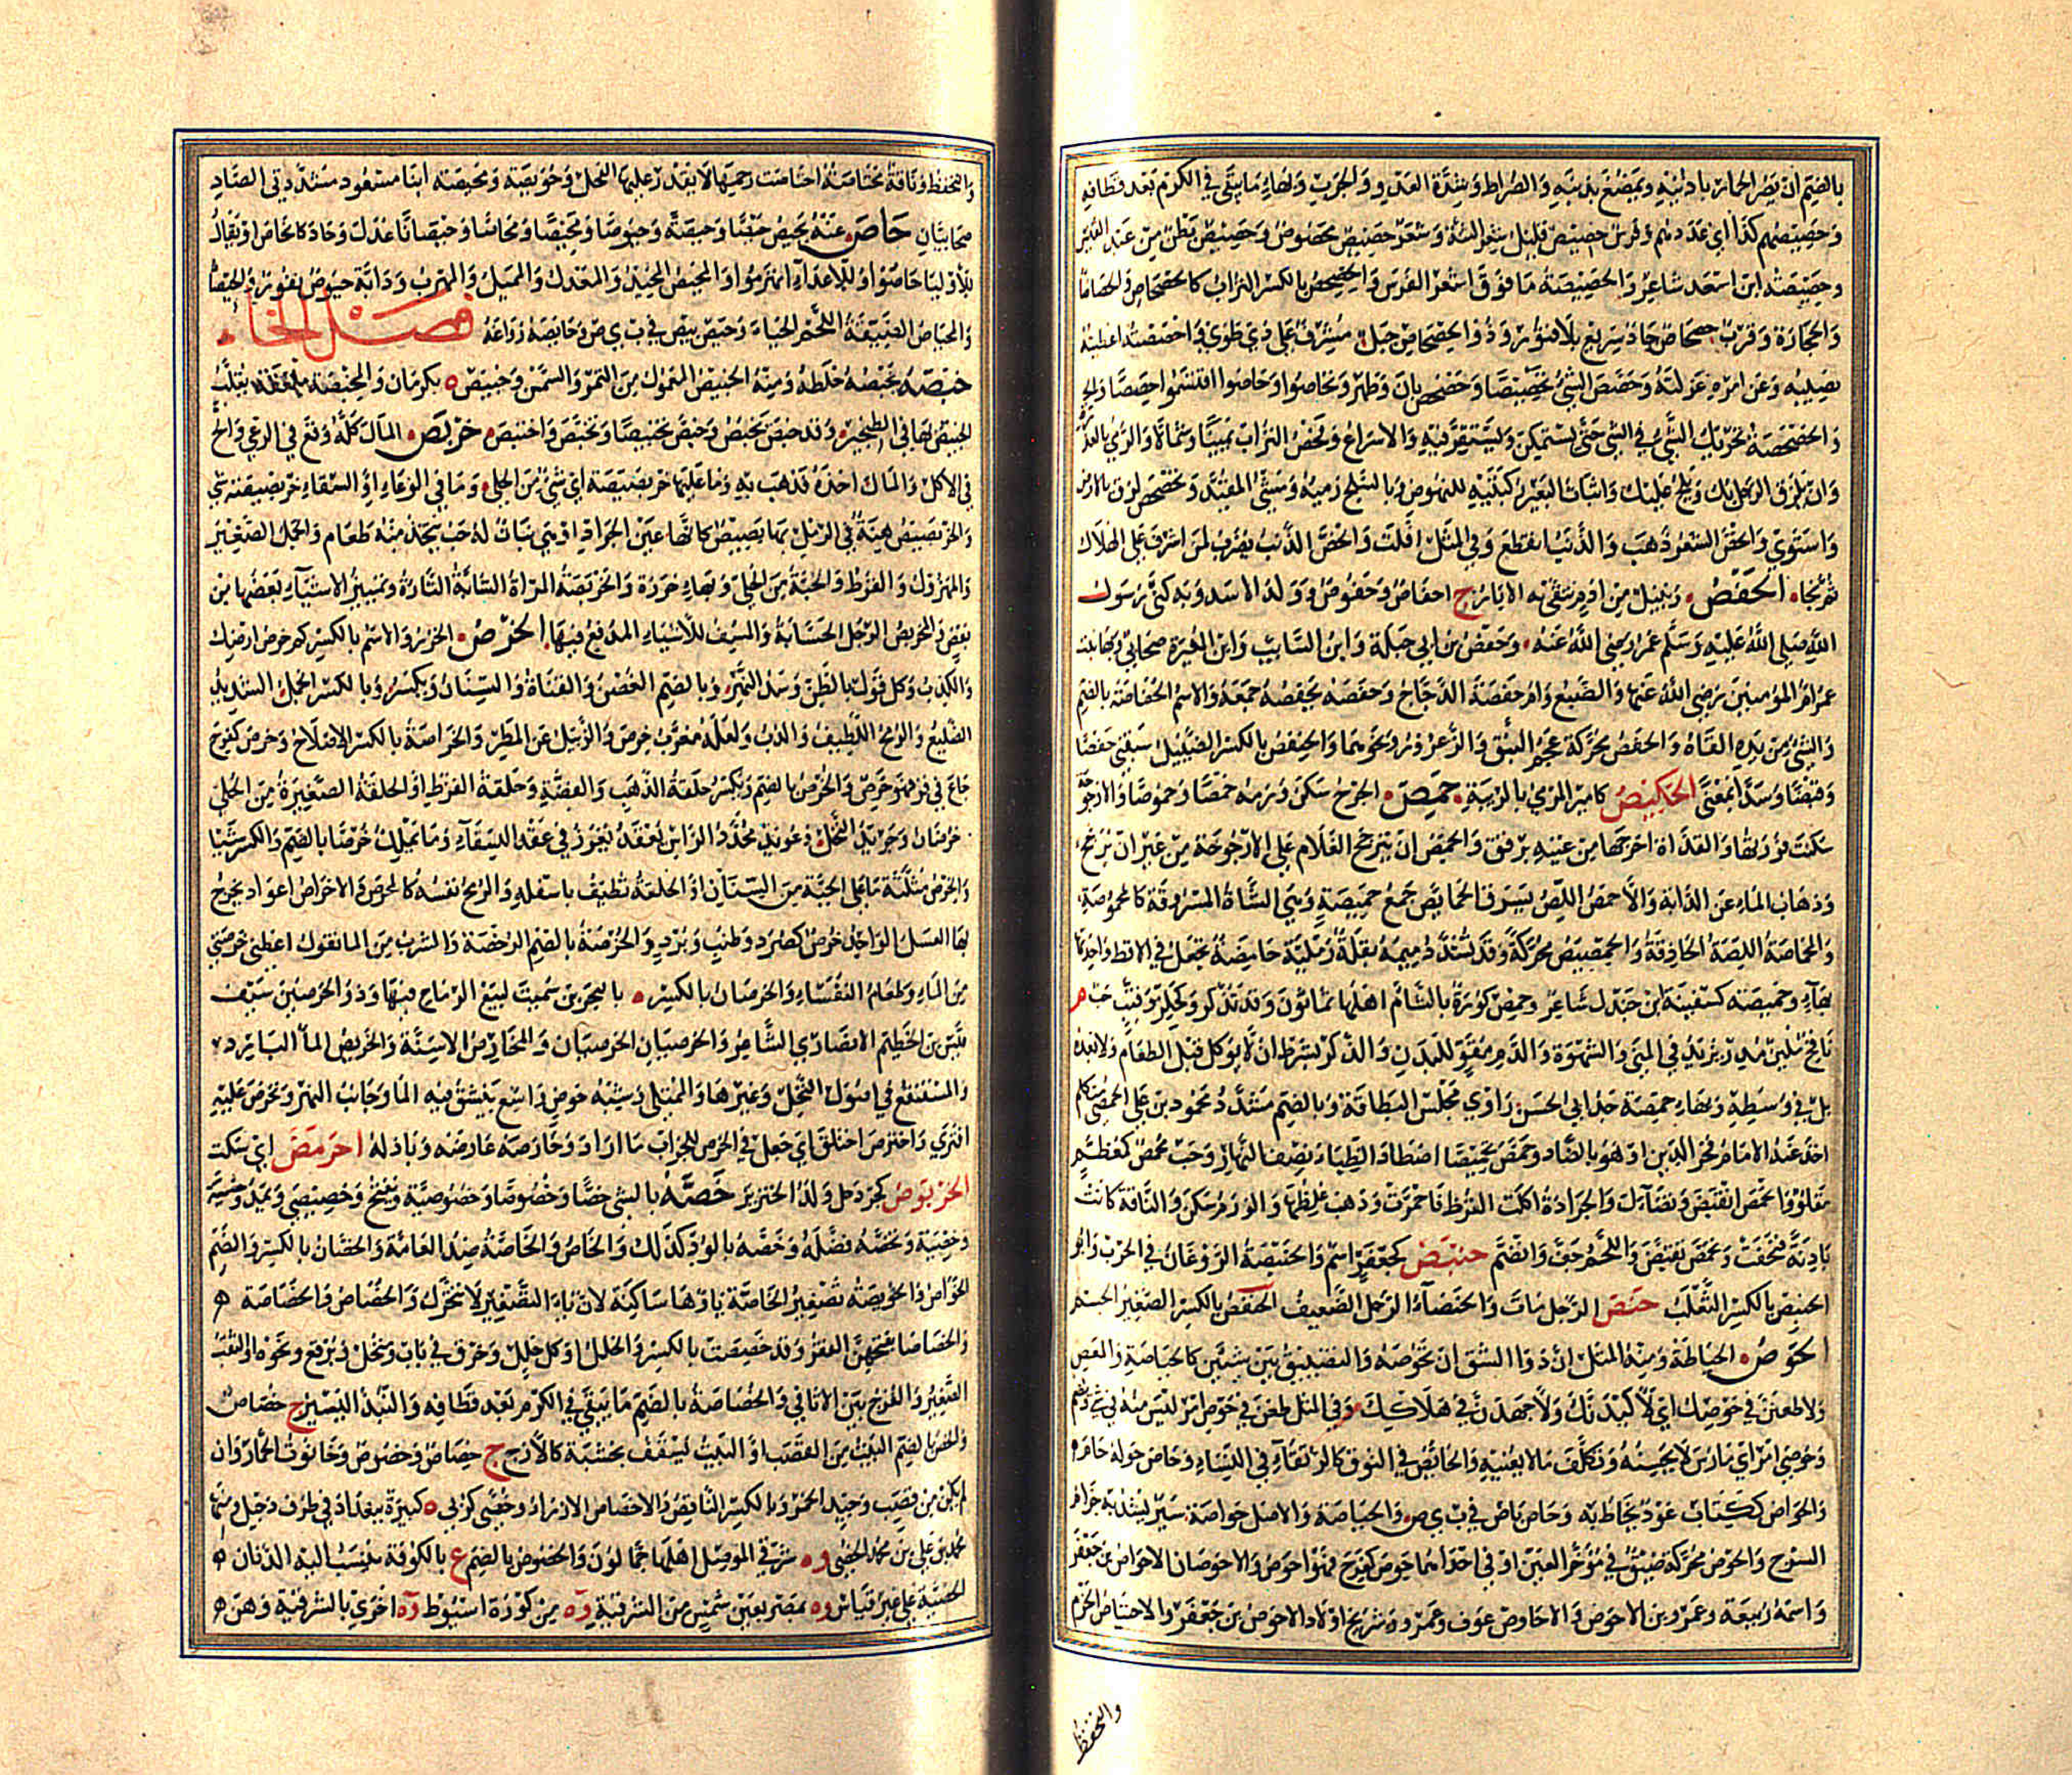 بالضم أن يصر الحمار بأذنيه ويمصع بذنبه والضراط وشدة العدو والجرب وبهاء ما يبقى في الكرم بعد قطافه
وحصيصهم كذا أي عددهم وفرس حصيص قليل شعر الثنة وشعر حصيص محصوص وحصيص بطن من عبد القيس
وحصيصة ابن أسعد شاعر والحصيصة ما فوق أشعر الفرس والحصحص بالكسر التراب كالحصحاص والحصاصا
والحجارة وقرب حصحاص جاد سريع بلا فتور وذو الحصحاص جبل مشرف على ذي طوى وأحصصته أعطيته
نصيبه وعن أمره عزلته وحصص الشيء تحصيصا وحصحص بان وظهر وتحاصوا وحاصوا اقتسموا حصصا
والحصحصة تحريك الشيء في الشيء حتى يستمكن ويستقر فيه والإسراع وفحص التراب يمينا وشمالا والرمي بالعذرة
وأن يلزق الرجل بك ويلح عليك وإثبات البعير ركبتيه للنهوض وبالسلح رميه ومشي المقيد وتحصحص لزق بالأرض
واستوى وانحص الشعر ذهب والذنب انقطع وفي المثل أفلت وانحص الذنب يضرب لمن أشرف على الهلاك
ثم نجا الحفص زبيل من أدم تنقى به الآبار ج أحفاص وحفوص وولد الأسد وبه كنى رسول
الله صلى الله عليه وسلم عمر رضي الله عنه وحفص بن أبي جبلة وابن السائب وابن المغيرة صحابيون وبهاء بنت
عمر أم المؤمنين رضي الله عنها والضبع وأم حفصة الدجاج وحفصه يحفصه جمعه والاسم الحفاصة بالضم
والشيء من يده ألقاه والحفص محركة عجم النبق والزعرور ونحوهما والحنفص بالكسر الضئيل سبقني حفصا
وقبصا وشدا بمعنى الحكيص كأمير المرمي بالريبة حمص الجرح سكن ورمه حمصا وحموصا والأرجوحة
سكنت فورتها والقذاة أخرجها من عينه برفق والحمص أن يترجح الغلام على الأرجوحة من غير أن يرجح
وذهاب الماء عن الدابة والأحمص اللص يسرق الحمائص جمع حميصة وهي الشاة المسروقة كالمحموصة
والمحماصة اللصة الحاذقة والحمصيص محركة وقد تشدد ميمه بقلة رملية حامضة تجعل في الأقط واحدتها
بهاء وحميصة كسفينة ابن جندل شاعر وحمص كورة بالشام أهلها يمانون وقد تذكر وكحلز وقنب حب م
نافخ ملين مدر يزيد في المني والشهوة والدم مقو للبدن والذكر بشرط أن لا يؤكل قبل الطعام ولا بعده
بل في وسطه وبهاء حمصة جد أبي الحسن راوي مجلس البطاقة وبالضم مشدد محمود بن علي الحمصي متكلم
أخذ عنه الإمام فخر الدين أو هو بالضاد وحمص تحميصا اصطاد الظباء نصف النهار وحب محمص كمعظم
مقلو وانحمص انقبض وتضاءل والجرادة أكلت القرظ فاحمرت وذهب غلظها والورم سكن والناقة كانت
بادنة فنحفت وتحمص تقبض واللحم جف وانضم حنبص كجعفر اسم والحنبصة الروغان في الحرب وأبو
الحنبص بالكسر الثعلب حنص الرجل مات والحنصأو الرجل الضعيف الحنفص بالكسر الصغير الجسم
الحوص الخياطة ومنه المثل إن دواء الشق أن تحوصه والتضييق بين شيئين كالحياصة والغص
ولأطعنن في حوصك أي لأكيدنك ولأجهدن في هلاكك وفي المثل طعن في حوص أمر ليس منه في شيء وبضم
وحوصي أمر أي مارس ما لا يحسنه وتكلف ما لا يعنيه والحائص في النوق كالرتقاء في النساء وحاص حوله حام
والحواص ككتاب عود يخاط به وحاص باص في ب ي ص والحياصة والأصل حواصة سير يشد به حزام
السرج والحوص محركة ضيق في مؤخر العين أو في إحداهما حوص كفرح فهو أحوص والأحوصان الأحوص بن جعفر
واسمه ربيعة وعمرو بن الأحوص والأحاوص عوف وعمرو وشريح أولاد الأحوص بن جعفر والاحتياص الحزم
والتحفظ
والتحفظ وناقة محتاصة احتاصت رحمها لا يقدر عليها الفحل وحويصة ومحيصة ابنا مسعود مشددتي الصاد
صحابيان حاص عنه يحيص حيصا وحيصة وحيوصا ومحيصا ومحاصا وحيصانا عدل وحاد كانحاص أو يقال
للأولياء حاصوا وللأعداء انهزموا والمحيص المحيد والمعدل والمميل والمهرب ودابة حيوص نفور والحيصاء
والمحياص الضيقة اللحم الحياء وحيص بيص في ب ي ص وحايصه راوغه فصل الخاء
خبصه يخبصه خلطه ومنه الخبيص المعمول من التمر والسمن وخبيص بكرمان والمخبصة ملعقة يقلب
الخبيص بها في الطنجير وقد خبص يخبص وخبص تخبيصا وتخبص واختبص خربص المال كله وقع في الرعي وألح
في الأكل والمال أخذه فذهب به وما عليها خربصيصة أي شيء من الحلي وما في الوعاء أو السقاء خربصيصة شيء
والخربصيص هنة في الرمل بها بصيص كأنها عين الجراد أو هي نبات له حب يتخذ منه طعام والجمل الصغير
والمهزول والقرط والحبة من الحلي وبهاء خرزة والخربصة المرأة الشابة التارة وتمييز الأشياء بعضها من
بعض والمخربص الرجل الحسابة والمسف للأشياء المدقع فيها الخرص الحزر والاسم بالكسر كم خرص أرضك
والكذب وكل قول بالظن وسد النهر وبالضم الغصن والقناة والسنان ويكسر وبالكسر الجمل الشديد
الضليع والرمح اللطيف والدب ولعله معرب خرس والزبيل عن المطرز والخراصة بالكسر الإصلاح وخرص كفرح
جاع في قر فهو خرص والخرص بالضم ويكسر حلقة الذهب والفضة وحلقة القرط أو الحلقة الصغيرة من الحلي
خرصان وجريد النخل وعويد محدد الرأس يغرز في عقد السقاء وما يملك خرصا بالضم والكسر شيئا
والخرص مثلثة ما على الجبة من السنان أو الحلقة تطيف بأسفله والرمح نفسه كالمخرص والأخراص أعواد يخرج
بها العسل الواحد خرص كصرد وطنب وبرد والخرصة بالضم الرخصة والشرب من الماء تقول أعطني خرصتي
من الماء وطعام النفساء والخرصان بالكسر ه بالبحرين سميت لبيع الرماح فيها وذو الخرصين سيف
قيس بن الخطيم الأنصاري الشاعر والخرصيان الحرصيان والمخارص الأسنة والخريص الماء البارد
والمستنقع في أصول النخل وغيرها والممتلئ وشبه حوض واسع ينبثق فيه الماء وجانب النهر وتخرص عليه
افترى واخترص اختلق أي جعل في الخرص للجراب ما أراد وخارصه عارضه وبادله اخرمص أي سكت
الخربوص كجردحل ولد الخنزير خصه بالشيء خصا وخصوصا وخصوصية ويفتح وخصيصى ويمد وخصية
وخصية وتخصة فضله وخصه بالود كذلك والخاص والخاصة ضد العامة والخصان بالكسر والضم
الخواص والخويصة تصغير الخاصة ياؤها ساكنة لأن ياء التصغير لا تتحرك والخصاص والخصاصة ه
والخصاصاء بفتحهن الفقر وقد خصصت بالكسر والخلل أو كل خلل وخرق في باب ومنخل وبرقع ونحوه أو الثقب
الصغير والفرج بين الأثافي والخصاصة بالضم ما يبقى في الكرم بعد قطافه والنبذ اليسير ج خصاص
والخص بالضم البيت من القصب أو البيت يسقف بخشبة كالأزج ج خصاص وخصوص وحانوت الخمار وإن
لم يكن من قصب وجيد الخمر وبالكسر الناقص والإخصاص الإزراء وخصى كربى ه كبيرة ببغداد في طرف دجيل ومنها
محمد بن علي بن محمد الخصي وه شرقي الموصل أهلها جمالون والخصوص بالضم ع بالكوفة ينسب إليه الدنان
الخصية على غير قياس وه بمصر بعين شمس من الشرقية وه من كورة أسيوط وه أخرى بالشرقية وهن